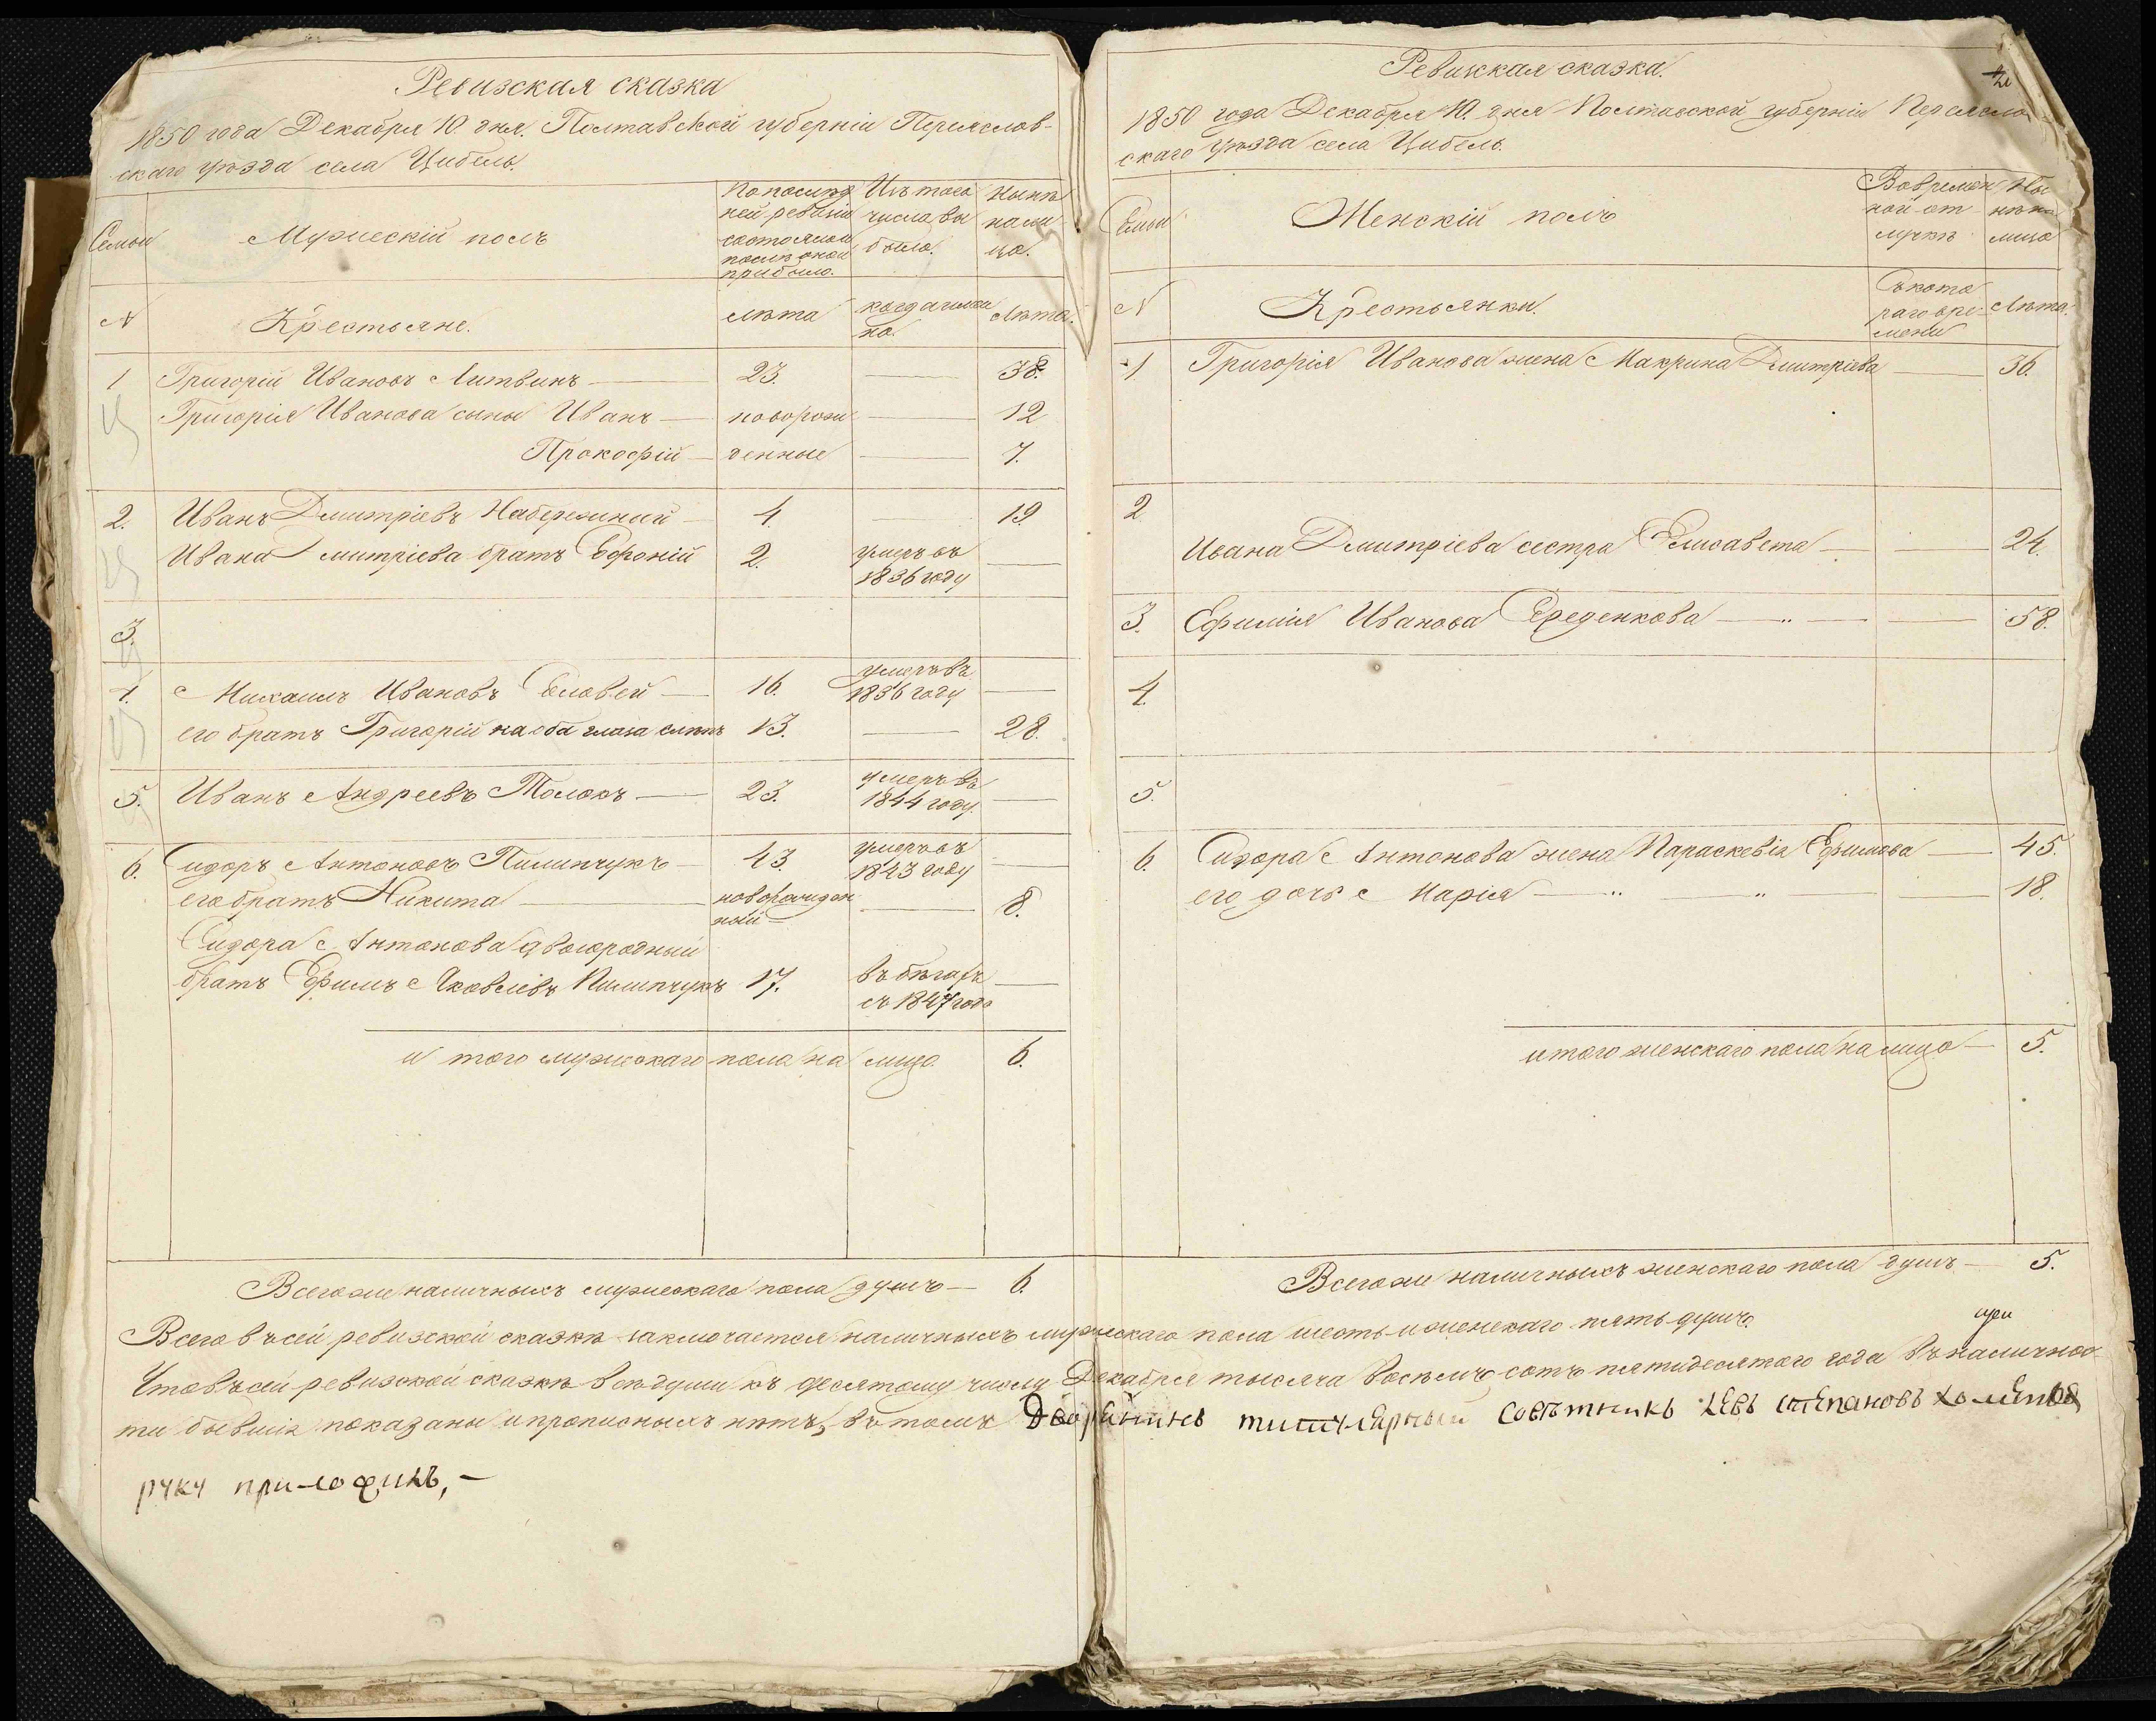 Ревизская сказка
1850 года Декабря 10 дня. Полтавской губерніи Переяслов-
скаго уѣзда села Цибель.
Семьи
Мужескій полъ
По послѣд
ней ревизіи
состояло и
послѣ оной
прибыло.
Изъ того
числа вы
было.
Нынѣ
нали
цо.
N
Крестьяне.
лѣта
когда имен
но.
Лѣта.
1 Григорій Ивановъ Литвинъ — 23. — 38.
Григорія Иванова сыны Иванъ — новорож — 12
Прокофій — денные — 7.
2. Иванъ Дмитріевъ Набережный — 4. — 19
Ивана Дмитріева братъ Ефроній 2. умеръ въ —
1836 году
3.
4. Михаилъ Ивановъ Соловей — 16. умеръ въ —
1836 году
его братъ Григорій на оба глаза слѣпъ 13. — 28.
5. Иванъ Андреевъ Толокъ — 23. умеръ въ —
1844 году.
6. Сидоръ Антоновъ Пилипчукъ — 43. умеръ въ —
1843 году
его братъ Никита — новорожден — 8.
ный
Сидора Антонова двоюродный
братъ Ефимъ Яковлевъ Пилипчукъ 17. въ бѣгахъ —
съ 1847 года
и того мужескаго пола на лицо 6.
Всего же наличныхъ мужескаго пола душъ — 6.
Ревизская сказка.
1850 года Декабря 10. дня Полтавской губерніи Переяслов-
скаго уѣзда села Цибель.
Семьи
Женскій полъ
Во времен
ной от
лучкѣ
Ны
нѣ на
лицо
N
Крестьянки.
Съ кото
раго вре-
мени
Лѣта.
1. Григорія Иванова жена Макрина Дмитріева — 36.
2
Ивана Дмитріева сестра Елисавета — — 24.
3. Ефимія Иванова Середенкова — „ — — 58.
4.
5.
6. Сидора Антонова жена Параскевія Ефимова — 45.
его дочь Марія — „ — „ — — 18.
итого женскаго пола на лицо — 5.
Всего же наличныхъ женскаго пола душъ — 5.
Всего въ сей ревизской сказкѣ заключается наличныхъ мужескаго пола шесть и женскаго пять душъ.
Что въ сей ревизской сказкѣ всѣ души къ десятому числу Декабря тысяча восемь сотъ пятидесятого года въ наличнос-
ти бывшіе показаны и прописныхъ нѣтъ, въ томъ Дворянинъ титулярный советникъ Левъ степановъ
руку приложилъ, —